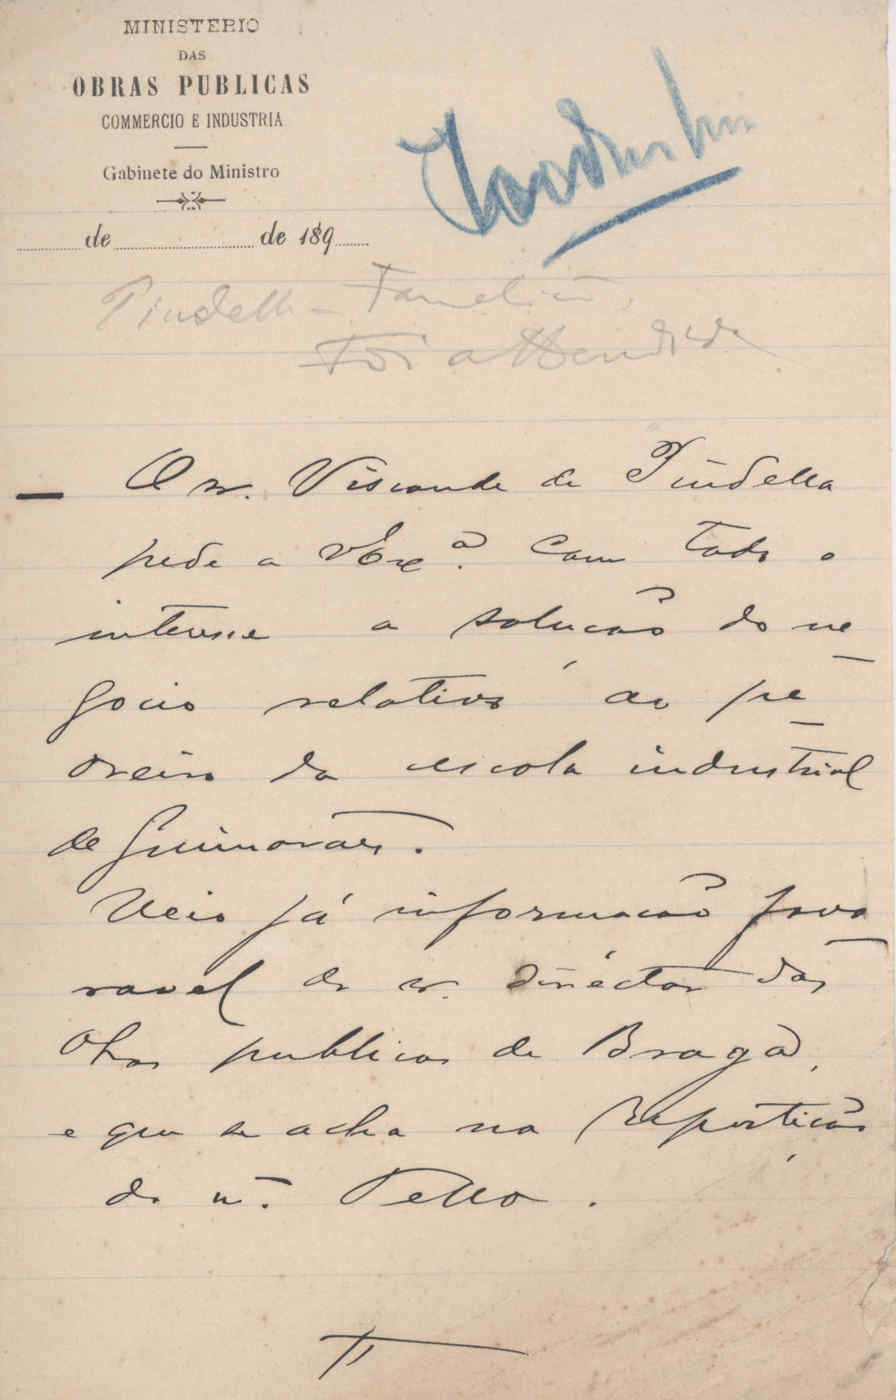 MINISTERIO
DAS
OBRAS PUBLICAS
COMMERCIO E INDUSTRIA
Gabinete do Ministro
de de 189
Pindella - Famelicão,
Foi attendido
O sr. Visconde de Pindella
pede a V Exª. com todo o
interesse a solução do ne
gocio relativo ao pe-
dreiro da escola industrial
de Guimarães.
Veio já informação favo
ravel do sr. diréctor das
Obras publicas de Braga,
e que se acha na Repartição
do sr. Tello.